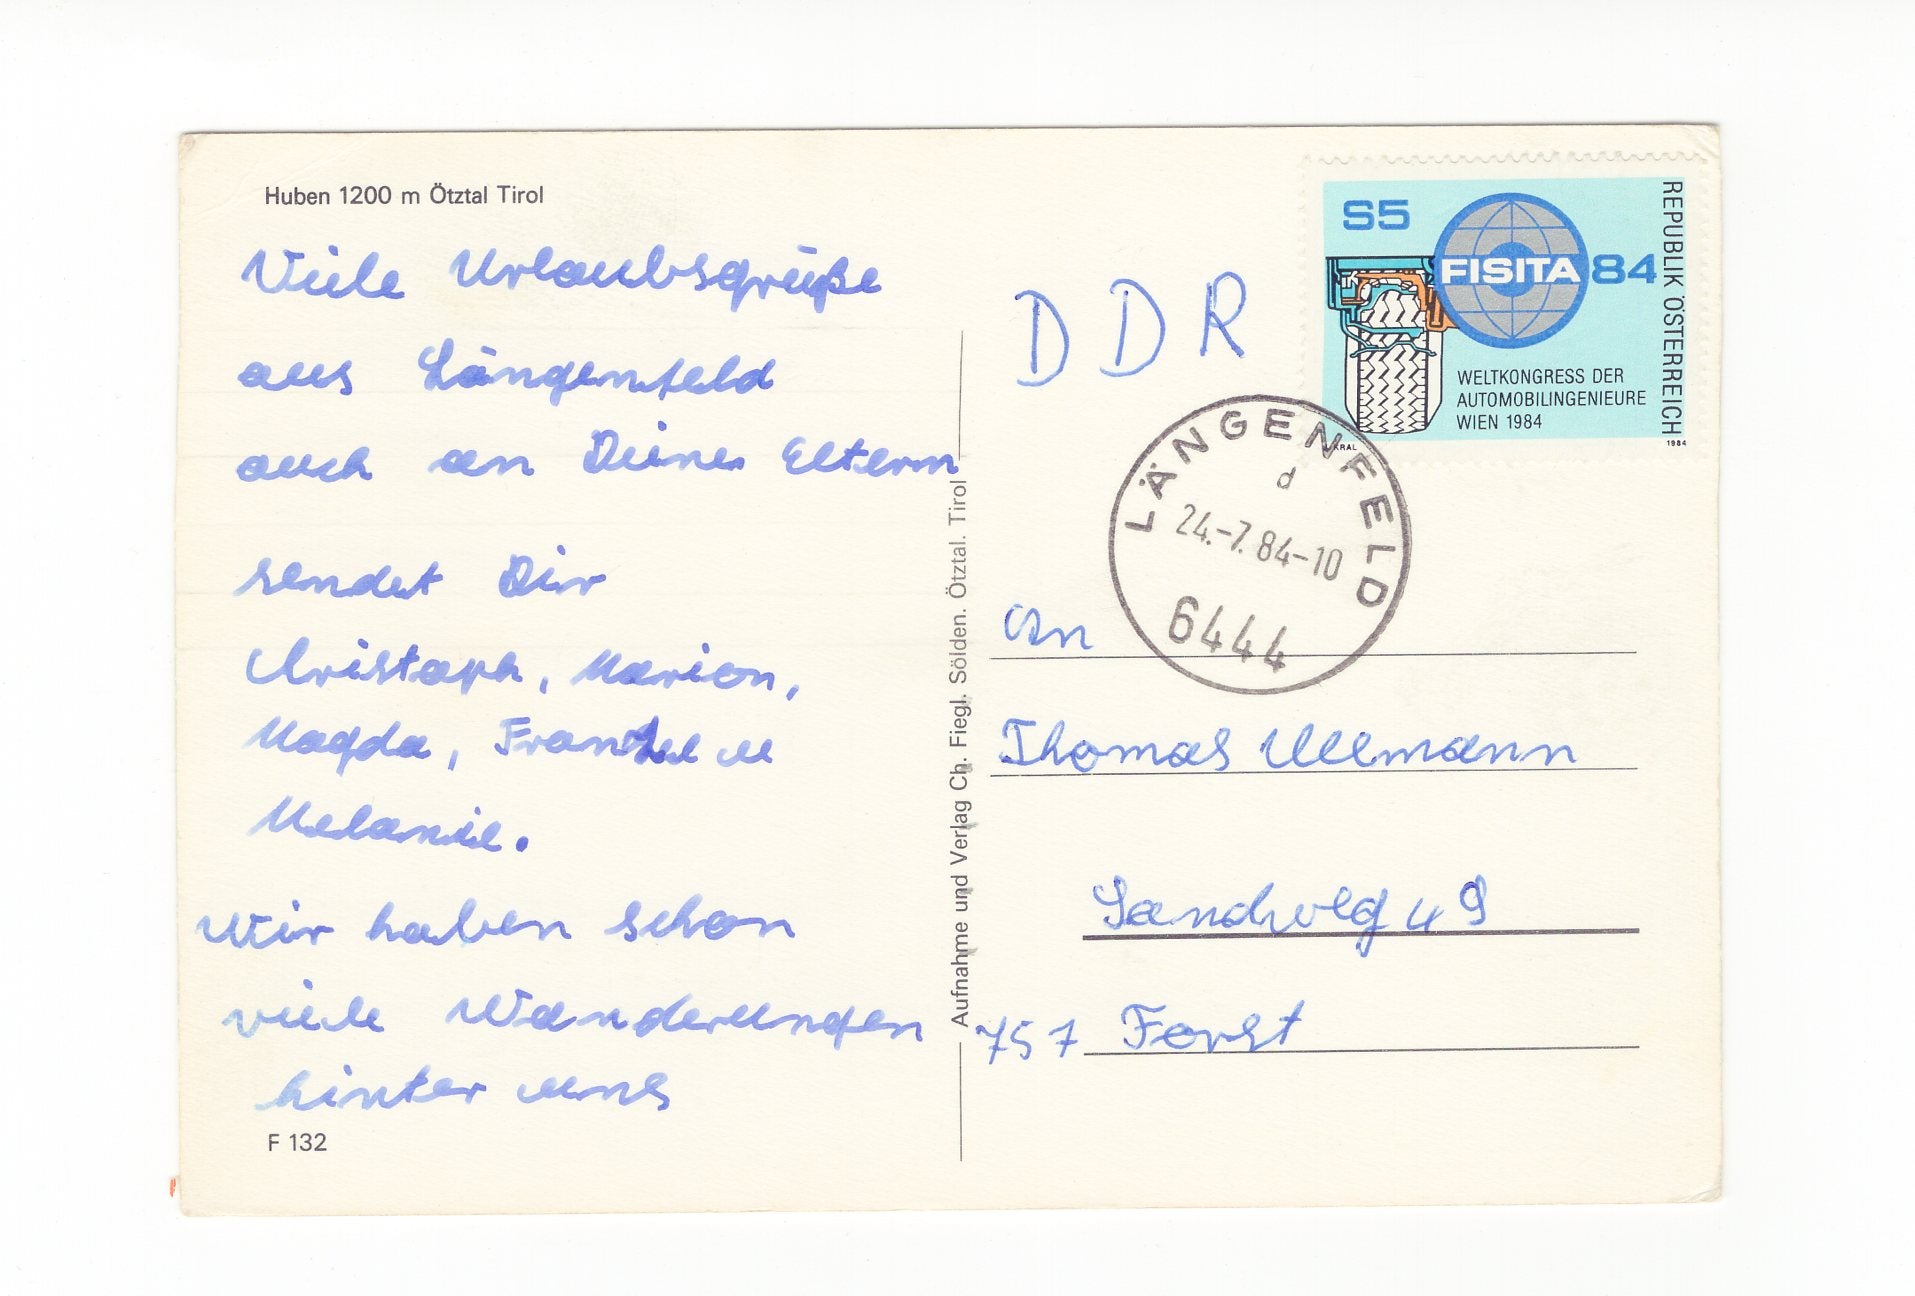 Huben 1200 m Ötztal Tirol
Viele Urlaubsgrüße
aus Längenfeld
auch an Deine Eltern
sendet Dir
Christoph, Marion,
Magda, Frank u
Melanie.
Wir haben schon
viele Wanderungen
hinter uns
F 132
Aufnahme und Verlag Ch. Fiegl. Sölden. Ötztal. Tirol
DDR
S5
FISITA 84
WELTKONGRESS DER
AUTOMOBILINGENIEURE
WIEN 1984
REPUBLIK ÖSTERREICH
KRAL
1984
LÄNGENFELD
d
24.-7.84-10
6444
An
Thomas Ullmann
Sandweg 49
757 Forst